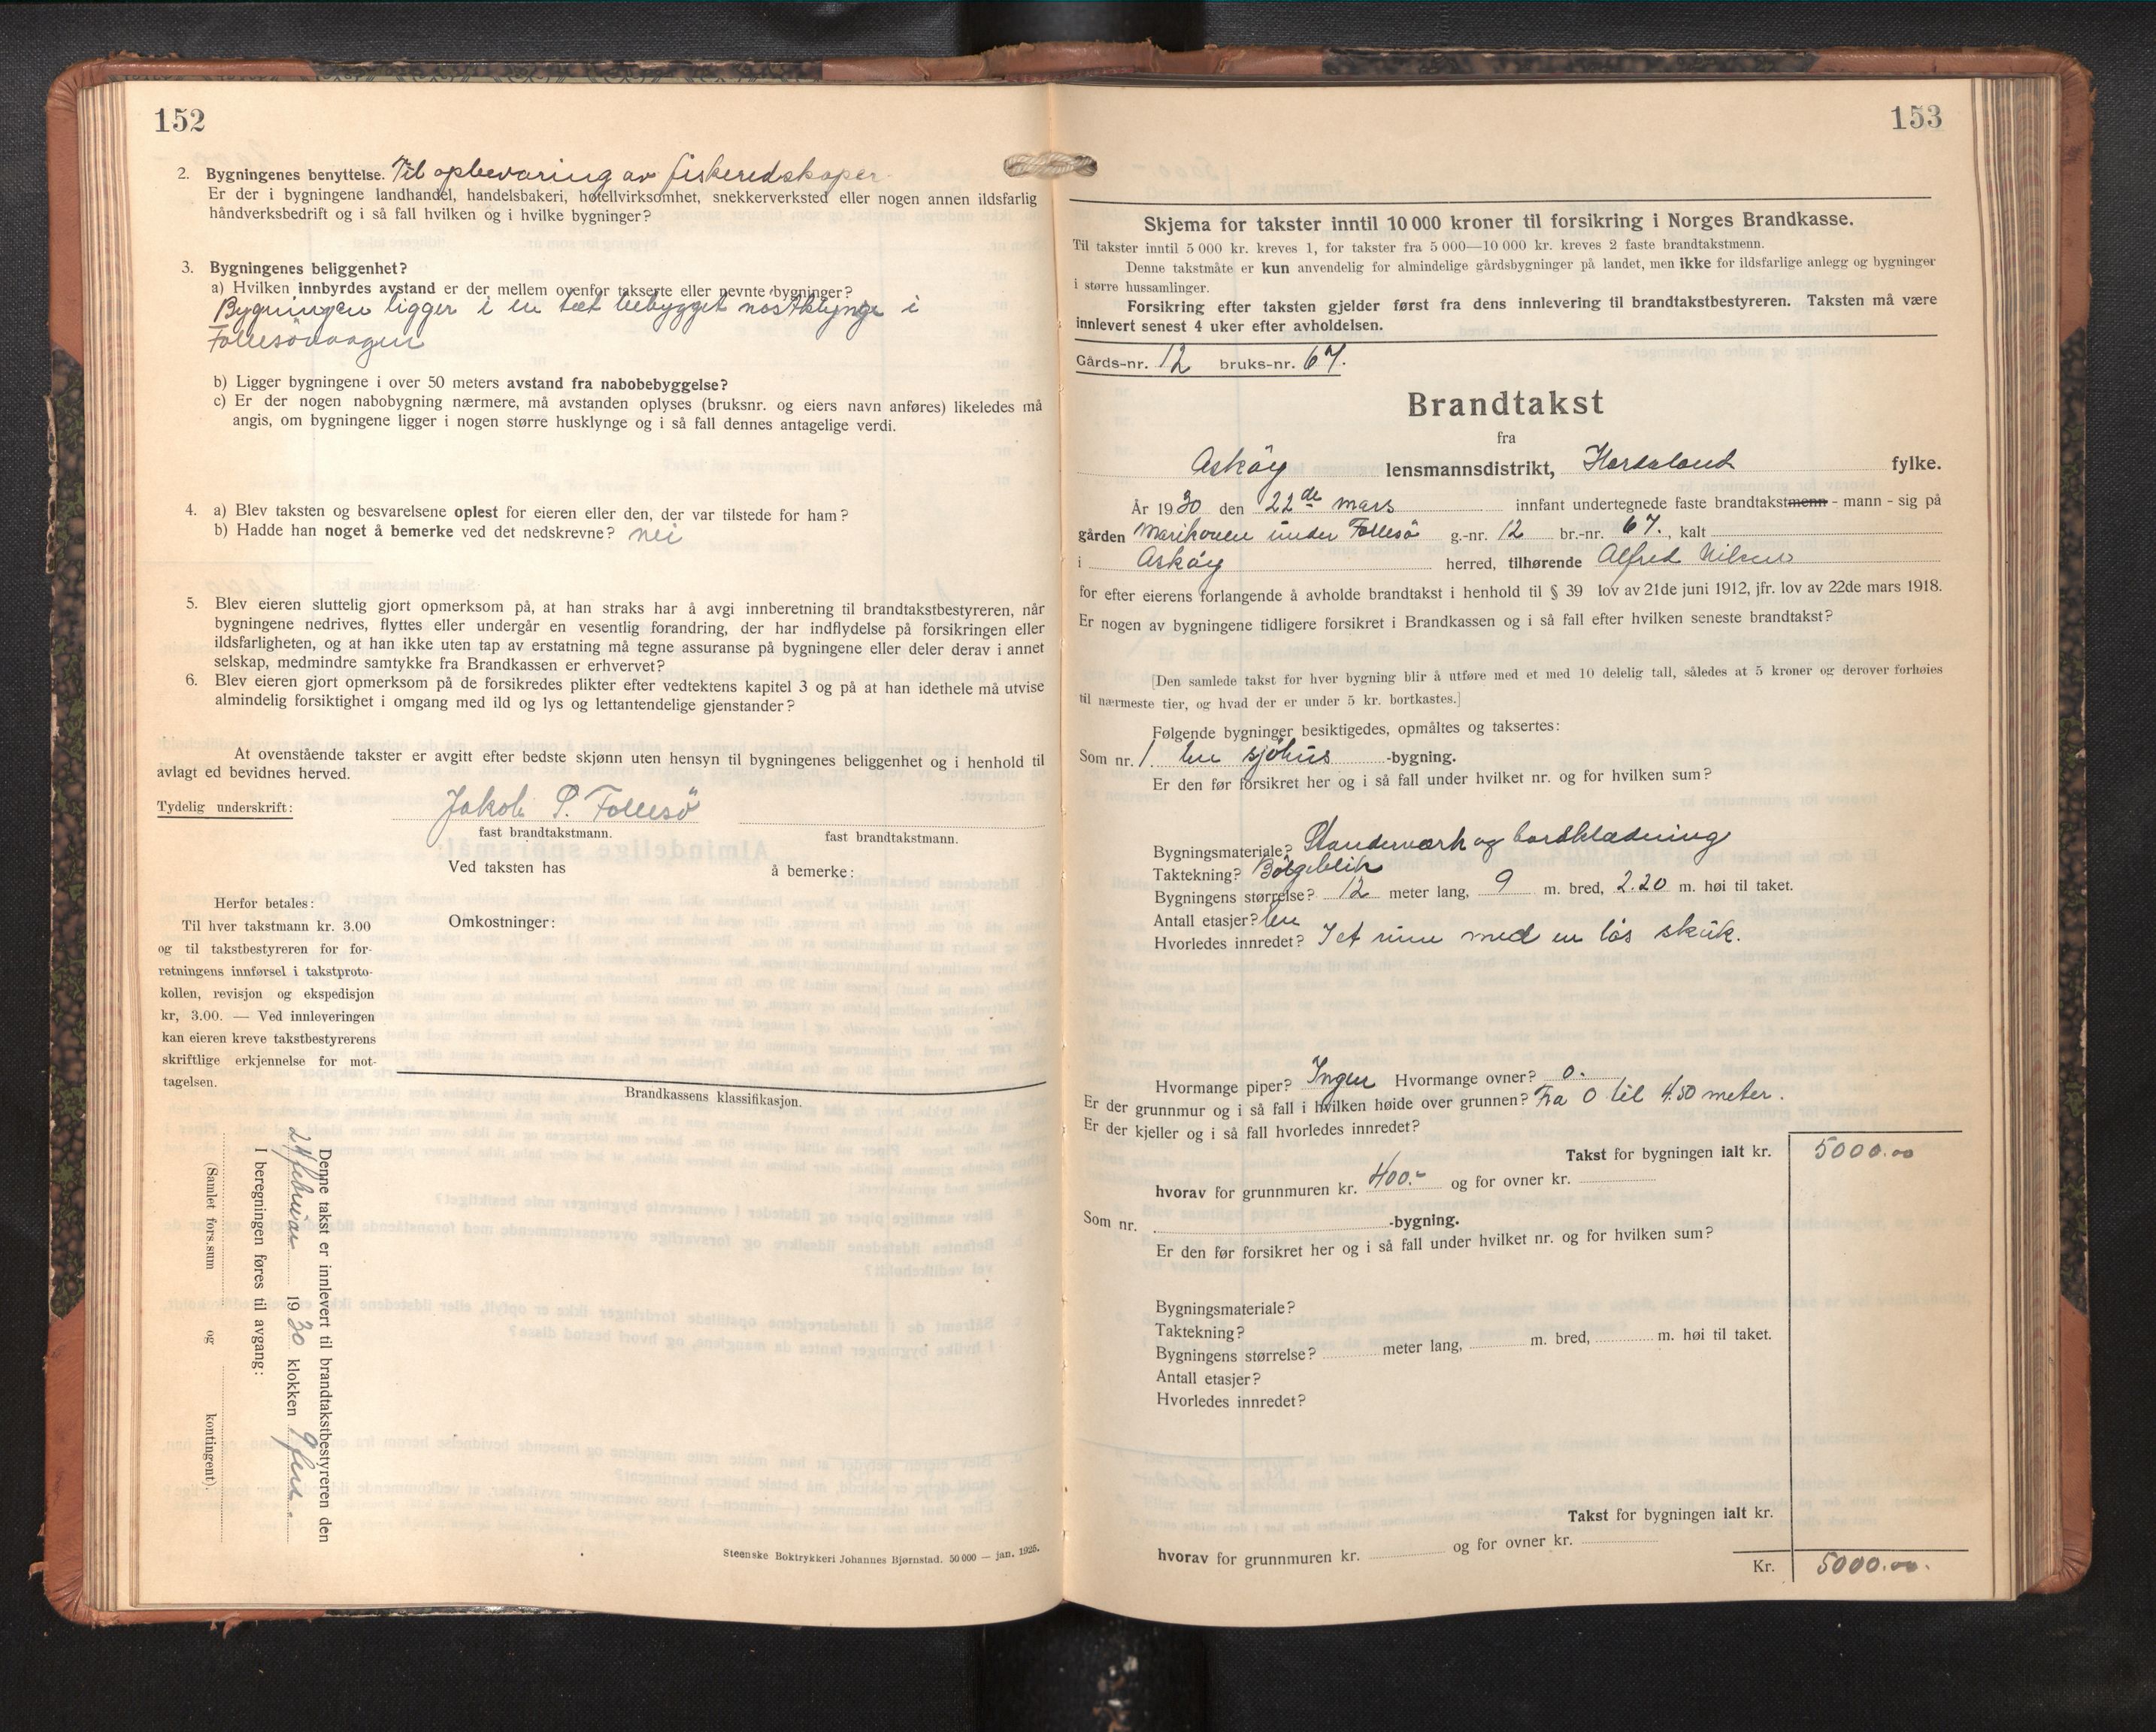 152
2. Bygningenes benyttelse. Til opbevaring av fiskeredskaper
Er der i bygningene landhandel, handelsbakeri, hotellvirksomhet, snekkerverksted eller nogen annen ildsfarlig
håndverksbedrift og i så fall hvilken og i hvilke bygninger?
3. Bygningenes beliggenhet?
a) Hvilken innbyrdes avstand er der mellem ovenfor takserte eller nevnte bygninger?
Bygningen ligger i en tæt bebygget nostklynge i
Follesövaagen
b) Ligger bygningene i over 50 meters avstand fra nabobebyggelse?
c) Er der nogen nabobygning nærmere, må avstanden oplyses (bruksnr. og eiers navn anføres) likeledes må
angis, om bygningene ligger i nogen større husklynge og i så fall dennes antagelige verdi.
4. a) Blev taksten og besvarelsene oplest for eieren eller den, der var tilstede for ham?
b) Hadde han noget å bemerke ved det nedskrevne? nei
5. Blev eieren sluttelig gjort opmerksom på, at han straks har å avgi innberetning til brandtakstbestyreren, når
bygningene nedrives, flyttes eller undergår en vesentlig forandring, der har indflydelse på forsikringen eller
ildsfarligheten, og at han ikke uten tap av erstatning må tegne assuranse på bygningene eller deler derav i annet
selskap, medmindre samtykke fra Brandkassen er erhvervet?
6. Blev eieren gjort opmerksom på de forsikredes plikter efter vedtektens kapitel 3 og på at han idethele må utvise
almindelig forsiktighet i omgang med ild og lys og lettantendelige gjenstander?
At ovenstående takster er avgitt efter bedste skjønn uten hensyn til bygningenes beliggenhet og i henhold til
avlagt ed bevidnes herved.
Tydelig underskrift: Jakob P. Follesö
fast brandtakstmann. fast brandtakstmann.
Ved taksten has å bemerke:
Herfor betales:
Til hver takstmann kr. 3.00
og til takstbestyreren for for-
retningens innførsel i takstproto-
kollen, revisjon og ekspedisjon
kr, 3.00. — Ved innleveringen
kan eieren kreve takstbestyrerens
skriftlige erkjennelse for mot-
tagelsen.
Omkostninger:
Brandkassens klassifikasjon.
Denne takst er innlevert til brandtakstbestyreren den
24 februar 1930 klokken 9 fm
I beregningen føres til avgang:
(Samlet fors.sum og kontingent).
Steenske Boktrykkeri Johannes Bjørnstad. 50 000 — jan. 1925.
153
Skjema for takster inntil 10 000 kroner til forsikring i Norges Brandkasse.
Til takster inntil 5 000 kr. kreves 1, for takster fra 5 000—10 000 kr. kreves 2 faste brandtakstmenn.
Denne takstmåte er kun anvendelig for almindelige gårdsbygninger på landet, men ikke for ildsfarlige anlegg og bygninger
i større hussamlinger.
Forsikring efter taksten gjelder først fra dens innlevering til brandtakstbestyreren. Taksten må være
innlevert senest 4 uker efter avholdelsen.
Gårds-nr. 12 bruks-nr. 67.
Brandtakst
fra
Asköy lensmannsdistrikt, Hordaland fylke.
År 1930 den 22de mars innfant undertegnede faste brandtakstmenn - mann - sig på
gården Marikoven under Follesö g.-nr. 12 br.-nr. 67., kalt
i Asköy herred, tilhørende Alfred Nilsen
for efter eierens forlangende å avholde brandtakst i henhold til § 39 lov av 21de juni 1912, jfr. lov av 22de mars 1918.
Er nogen av bygningene tidligere forsikret i Brandkassen og i så fall efter hvilken seneste brandtakst?
[Den samlede takst for hver bygning blir å utføre med et med 10 delelig tall, således at 5 kroner og derover forhøies
til nærmeste tier, og hvad der er under 5 kr. bortkastes.]
Følgende bygninger besiktigedes, opmåltes og taksertes:
Som nr. 1. en sjöhus -bygning.
Er den før forsikret her og i så fall under hvilket nr. og for hvilken sum?
Bygningsmateriale? Standerværk og bordklædning
Taktekning? Bölgeblik
Bygningens størrelse? 12 meter lang, 9 m. bred, 2.20 m. høi til taket.
Antall etasjer? en
Hvorledes innredet? I et rum med en lös skuk.
Hvormange piper? Ingen Hvormange ovner? 0.
Er der grunnmur og i så fall i hvilken høide over grunnen? Fra 0 til 4.50 meter.
Er der kjeller og i så fall hvorledes innredet?
Takst for bygningen ialt kr. 5000.00
hvorav for grunnmuren kr. 400.- og for ovner kr.
Som nr. -bygning.
Er den før forsikret her og i så fall under hvilket nr. og for hvilken sum?
Bygningsmateriale?
Taktekning?
Bygningens størrelse? meter lang, m. bred, m. høi til taket.
Antall etasjer?
Hvorledes innredet?
Takst for bygningen ialt kr.
hvorav for grunnmuren kr. og for ovner kr.
Kr. 5000.00.